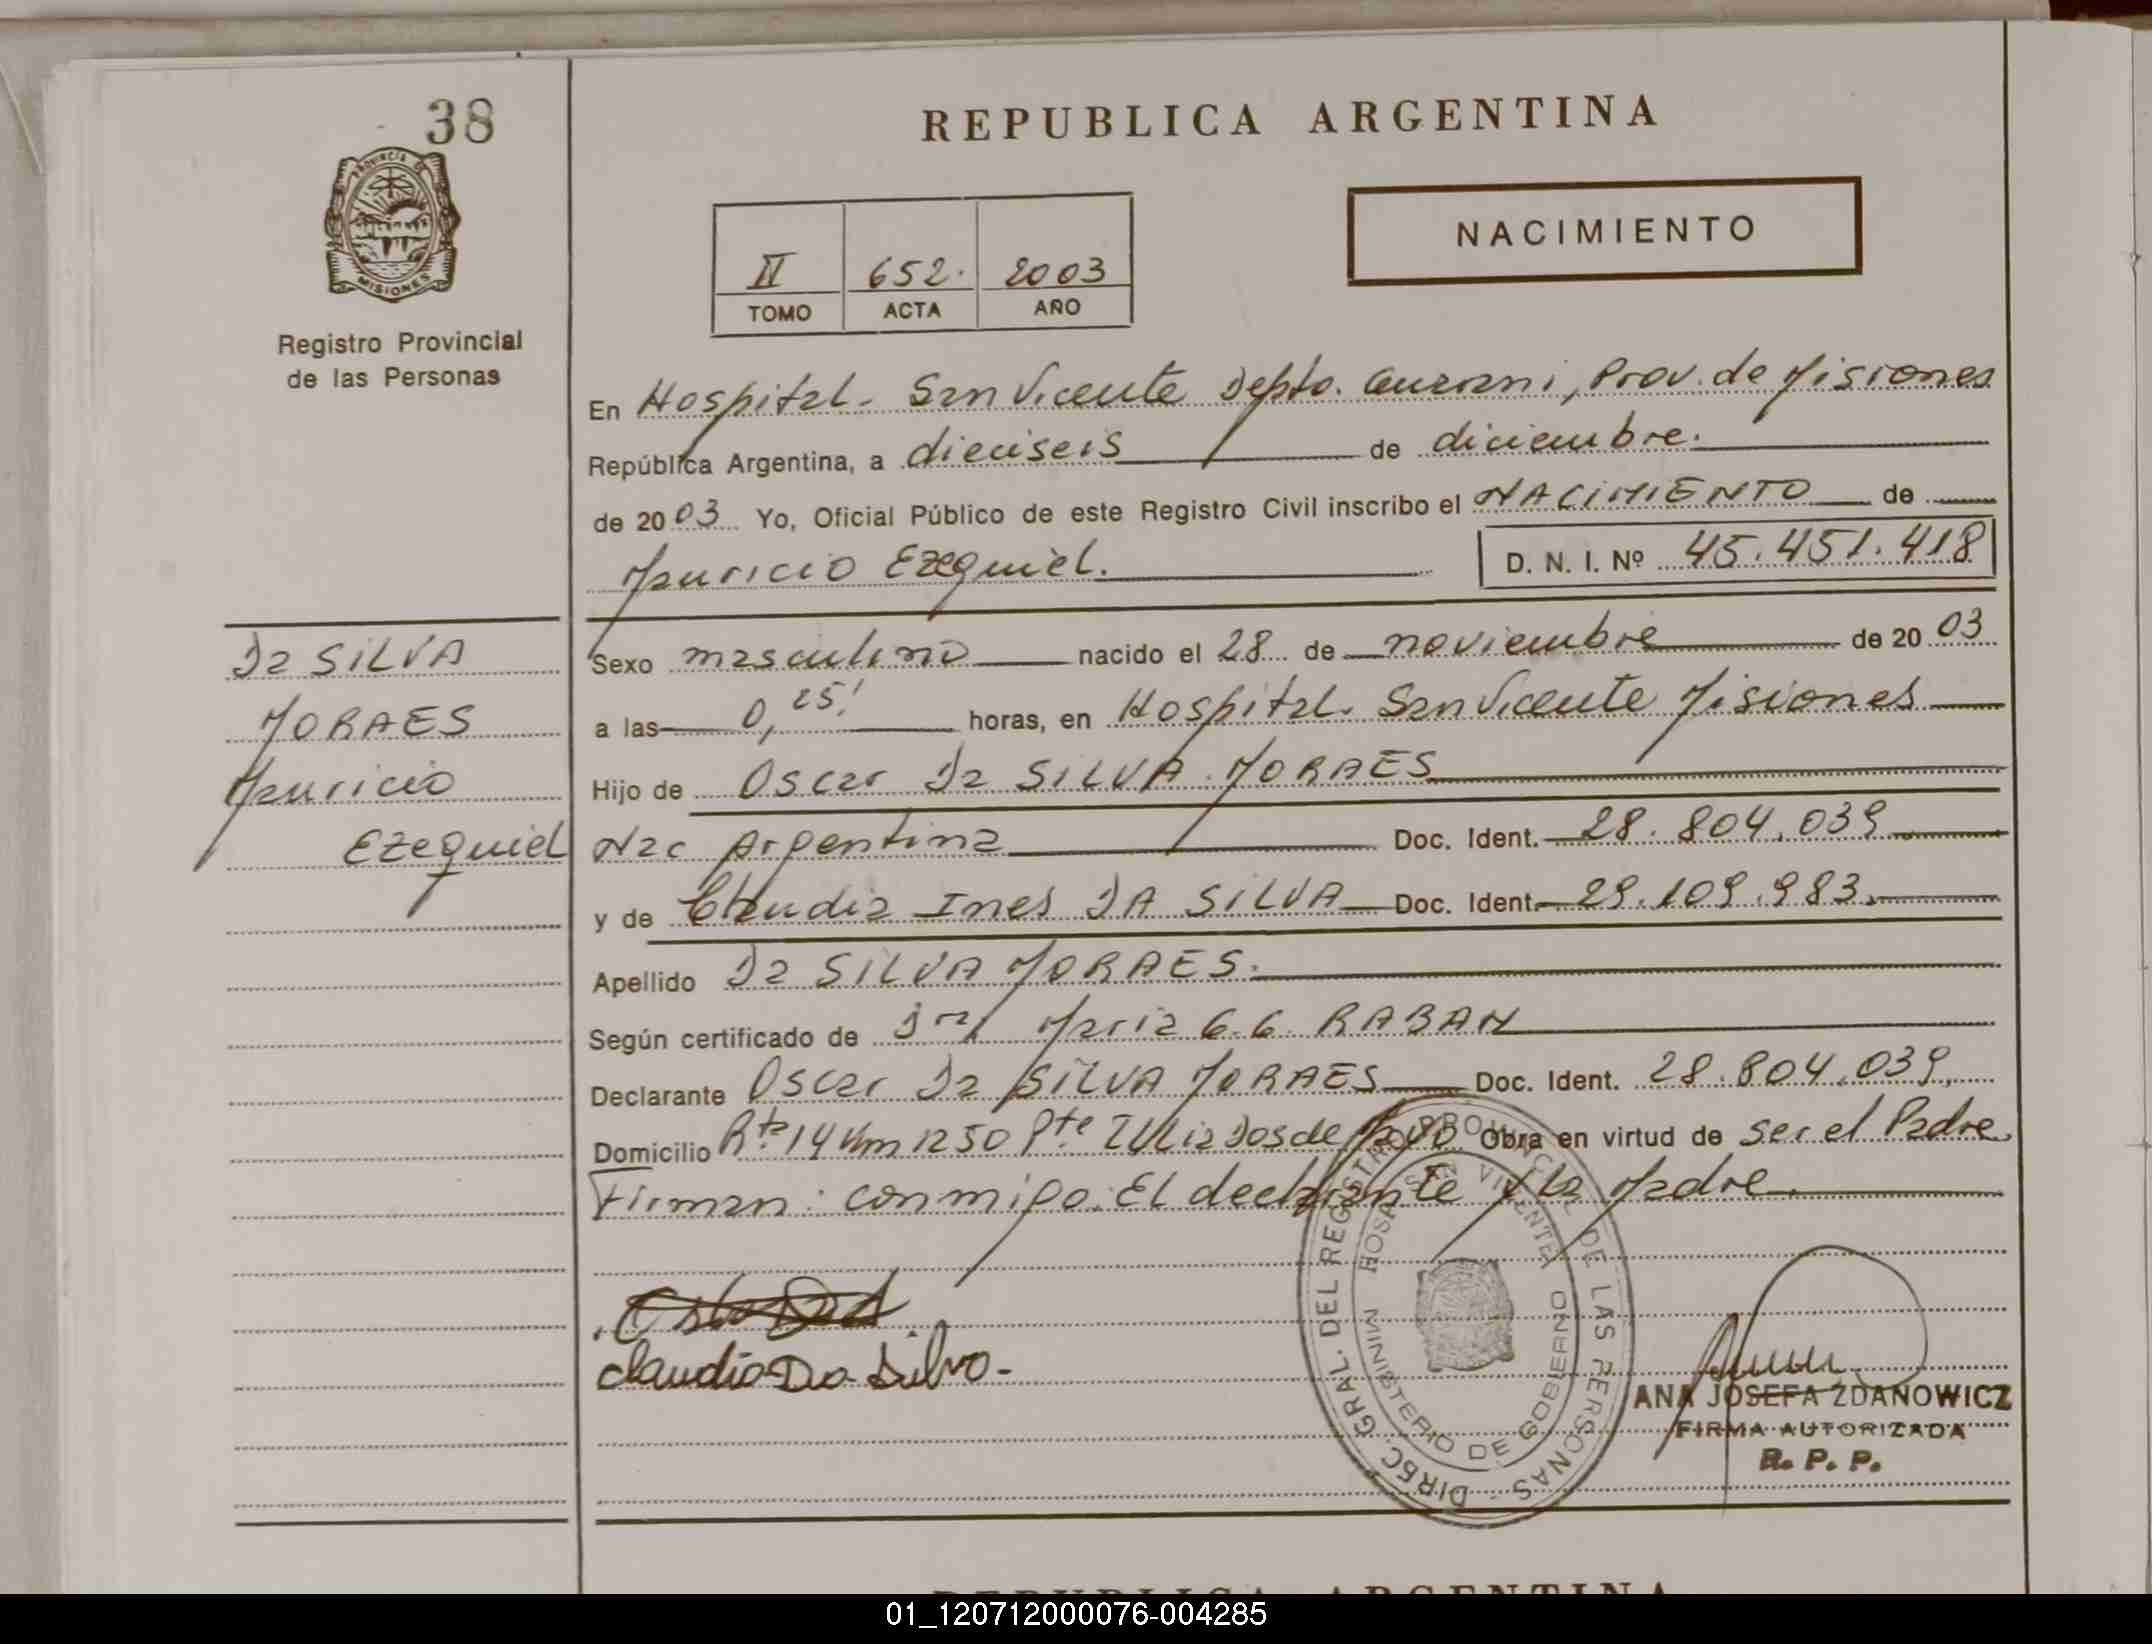 38
REPUBLICA ARGENTINA
PROVINCIA DE
MISIONES
Registro Provincial
de las Personas
NACIMIENTO
II 652. 2003
TOMO ACTA AÑO
En Hospital. San Vicente Depto. Guarani, Prov. de Misiones
República Argentina, a dieciseis de diciembre.
de 2003 Yo, Oficial Público de este Registro Civil inscribo el NACIMIENTO de
Mauricio Ezequiel. D. N. I. Nº 45.451.418
Da SILVA
MORAES
Mauricio
Ezequiel
Sexo masculino nacido el 28 de noviembre de 2003
a las 0,25' horas, en Hospital. San Vicente Misiones
Hijo de Oscar Da SILVA MORAES
Nac Argentina Doc. Ident. 28.804.039
y de Claudia Ines DA SILVA Doc. Ident. 29.109.983.
Apellido Da SILVA MORAES.
Según certificado de Dra Maria G.G. RABAN
Declarante Oscar Da SILVA MORAES Doc. Ident. 28.804.039,
Domicilio Rta 14 Km 1250 Pte Illia Dos de Mayo Obra en virtud de ser el Padre.
Firman: conmigo. El declarante y la Madre.
Claudia Da Silva.
DIREC. GRAL. DEL REGISTRO PROVINCIAL DE LAS PERSONAS
HOSP. SAN VICENTE
MINISTERIO DE GOBIERNO
ANA JOSEFA ZDANOWICZ
FIRMA AUTORIZADA
R. P. P.
REPUBLICA ARGENTINA
01_120712000076-004285